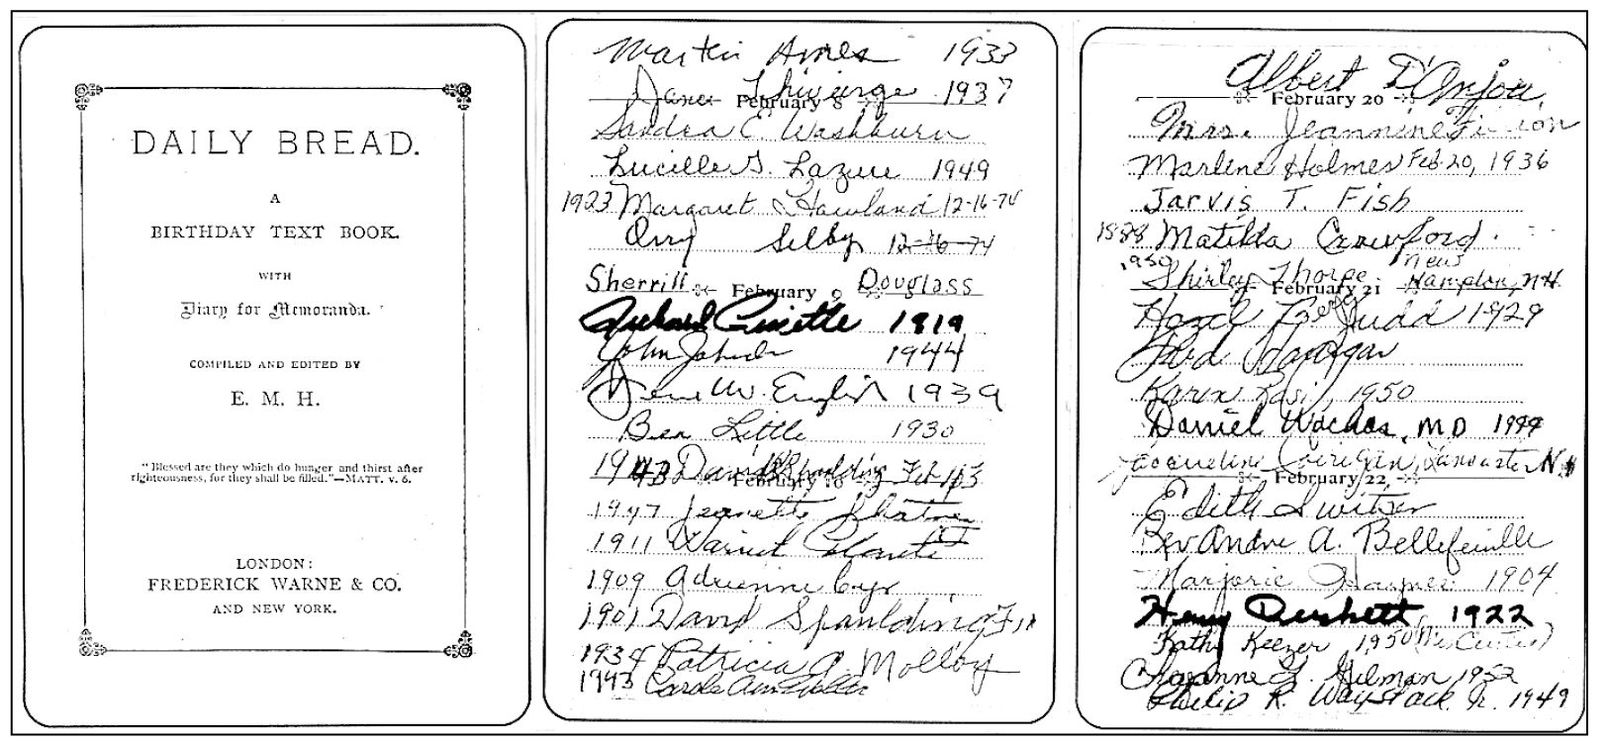 DAILY BREAD.
A
BIRTHDAY TEXT BOOK.
WITH
Diary for Memoranda.
COMPILED AND EDITED BY
E. M. H.
"Blessed are they which do hunger and thirst after
righteousness, for they shall be filled."—MATT. v. 6.
LONDON:
FREDERICK WARNE & CO.
AND NEW YORK.
Martin Ames 1933
Jane 1937
February 8
Sandra E. Washburn
Lucille G. Lazure 1949
1923 Margaret Howland 12-16-74
Orry Selby 12-16-74
Sherrill Douglass
February 9
Richard 1919
John 1944
W. English 1939
Ben Little 1930
1943 David Spaulding Feb
February 10
1947 Jeanette
1911
1909 Adrienne Cyr
1901 David Spaulding
1934 Patricia A. Molloy
1943 Carole Ann
Albert D'Anjou
February 20
Mrs. Jeannine
Marlene Holmes Feb. 20, 1936
Jarvis T. Fish
1888 Matilda Crawford
1950 Shirley Thorpe New Hampton, N.H.
February 21
Hazel Judd 1929
Karen 1950
Daniel MD
Jacqueline Corrigan, Lancaster N.H
February 22
Edith Switser
Rev Andre A. Bellefeuille
Marjorie 1904
Henry 1922
Kathy Keezer 1950
L. Gilman 1952
Philip R. Waystack Jr. 1949